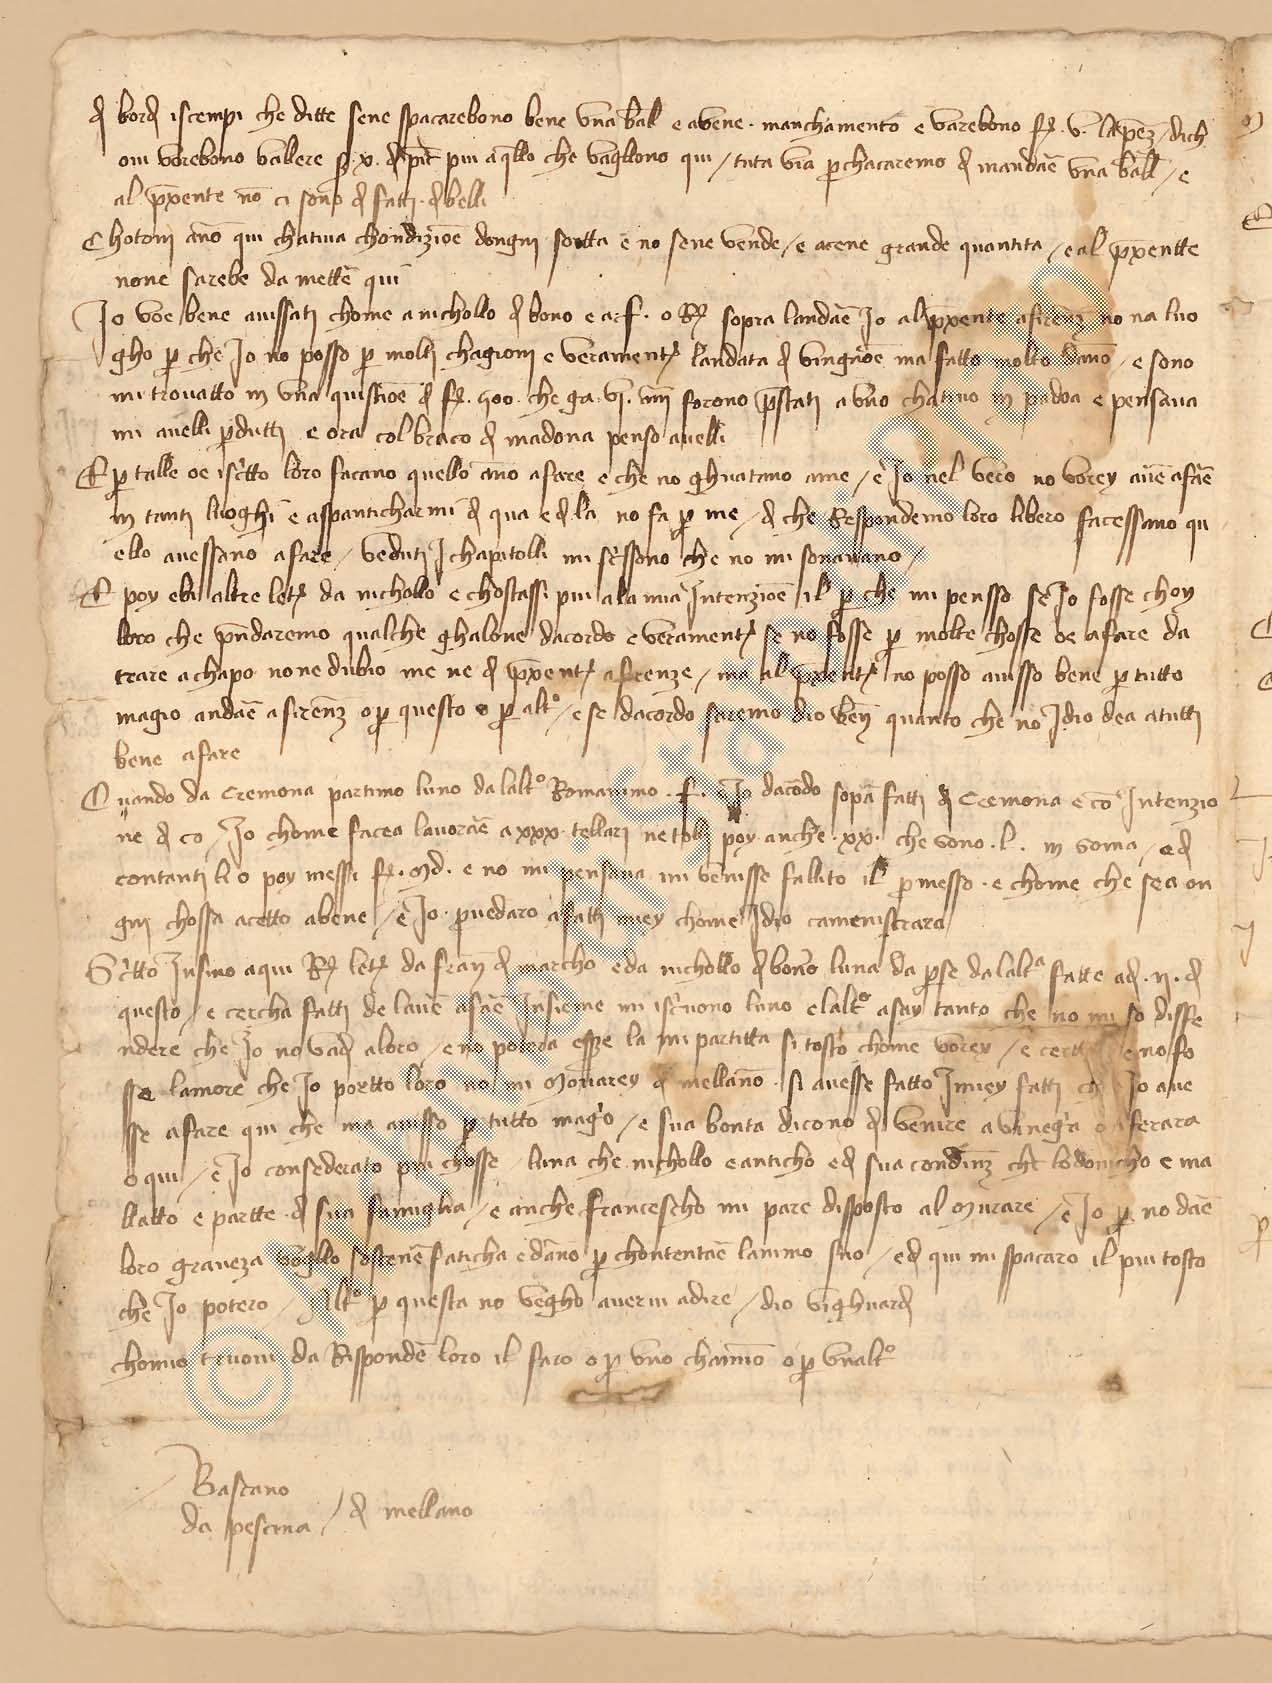 di bordi iscempi che ditte sene spacarebono bene una balla e avene manchamento e varebono f. v. la peza dich
ovi vorebono vallere s. x. di più a quello che vagliono qui / tuta via perchacaremo di mandare una balla / e
al prexente no ci sono di fatti di belli
Chotoni ano qui chativa chondizione dongni sortta e no sene vende / e acene grande quantita / e al prexentte
none sarebe da mettere qui
Io voe bene avissati chome a nichollo di bono e a f. o R. sopra landare Io al prexente a firenze no na luo
gho per che Io no posso per molti chagioni e veramente landata di vingnone ma fatto molto dano / e sono
mi trovatto in una quistione di f. 400 che ga vi. mi forono prestati a uno chativo in padoa e pensava
mi avelli perdutti e ora col braco di madona penso avelli
E per talle oe iscritto loro facano quello ano a fare e che no ghuatano a me / e Io nel vero no vorey avere a fare
in tanti luoghi e asspanticharmi di qua e di la no fa per me / di che Respondemo loro libero facessano qu
ello avessano a fare / veduti I chapitolli mi scrissono che no mi sonavano /
E poy ebi altre letere da nichollo e chostassi piu a la mia Intenzione il per che mi pensso se Io fosse choy
loro che prendaremo qualche ghalone dacordo e veramente se no fosse per molte chosse oe a fare da
trare a chapo none dubio me ne di prexente a firenze / ma al prexente no posso avisso bene per tutto
magio andare a firenze o per questo o per altro / e se dacordo saremo dio bene quanto che no Idio dea a tutti
bene a fare
Quando da Cremona partimo luno da laltro Romanimo f. e Io dacordo sopra fatti di Cremona e co Intenzio
ne di co / Io chome facea lavorare a xxx tellari ne tolli poy anche xx che sono l. in soma / e di
contanti li o poy messi f. md. e no mi pensava mi venisse fallito il permesso e chome che sea on
gni chossa acetto a bene / e Io provedaro a fatti miey chome Idio caminstrara
Scritto Insino a qui R. letere da franco di marcho e da nichollo di bono luna da per se da laltra fatte a di ii di
questo / e cercha fatti de lavere a fare Insieme mi iscrivono luno e laltro asay tanto che no mi so diffe
ndere che Io no vadi a loro / e no poteda essere la mi partitta si tosto chome vorey / e certo se no fo
sse lamore che Io portto loro no mi movarey di mellano si avesse fatto I miey fatti che Io ave
sse a fare qui che ma avisso per tutto magio / e sua bonta dicono di venire a vinegia o a ferara
o qui / e Io consederato piu chosse / luna che nichollo e anticho e di sua condinze che lodovicho e ma
llatto e partte di sua famiglia / e anche francescho mi pare disposto al murare / e Io per no dare
loro graveza voglio sostenere faticha e dano per chontentare lanimo suo / e di qui mi spacaro il piu tosto
che Io potero / Altro per questa no vegho avervi a dire / dio vi ghuardi
chomio truovi da Rispondere loro il faro o per uno chamino o per unaltro
Bascano
da pescina / di mellano